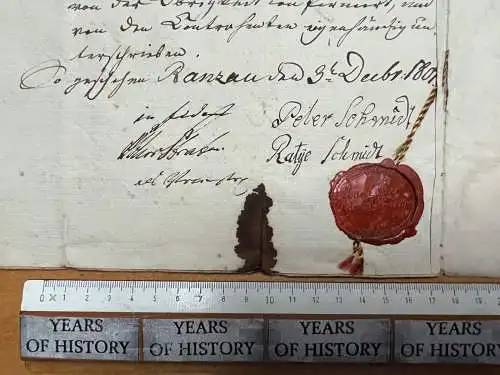 von der Obrigkeit confirmirt, und
von den Contrahenten eigenhändig un-
terschrieben.
So geschehen Ranzau den 3t. Decbr. 180
Peter Schmidt
Ratje Schmidt
0 1 2 3 4 5 6 7 8 9 10 11 12 13 14 15 16 17 18 19
YEARS OF HISTORY YEARS OF HISTORY YEARS OF HISTORY YEARS OF HISTORY